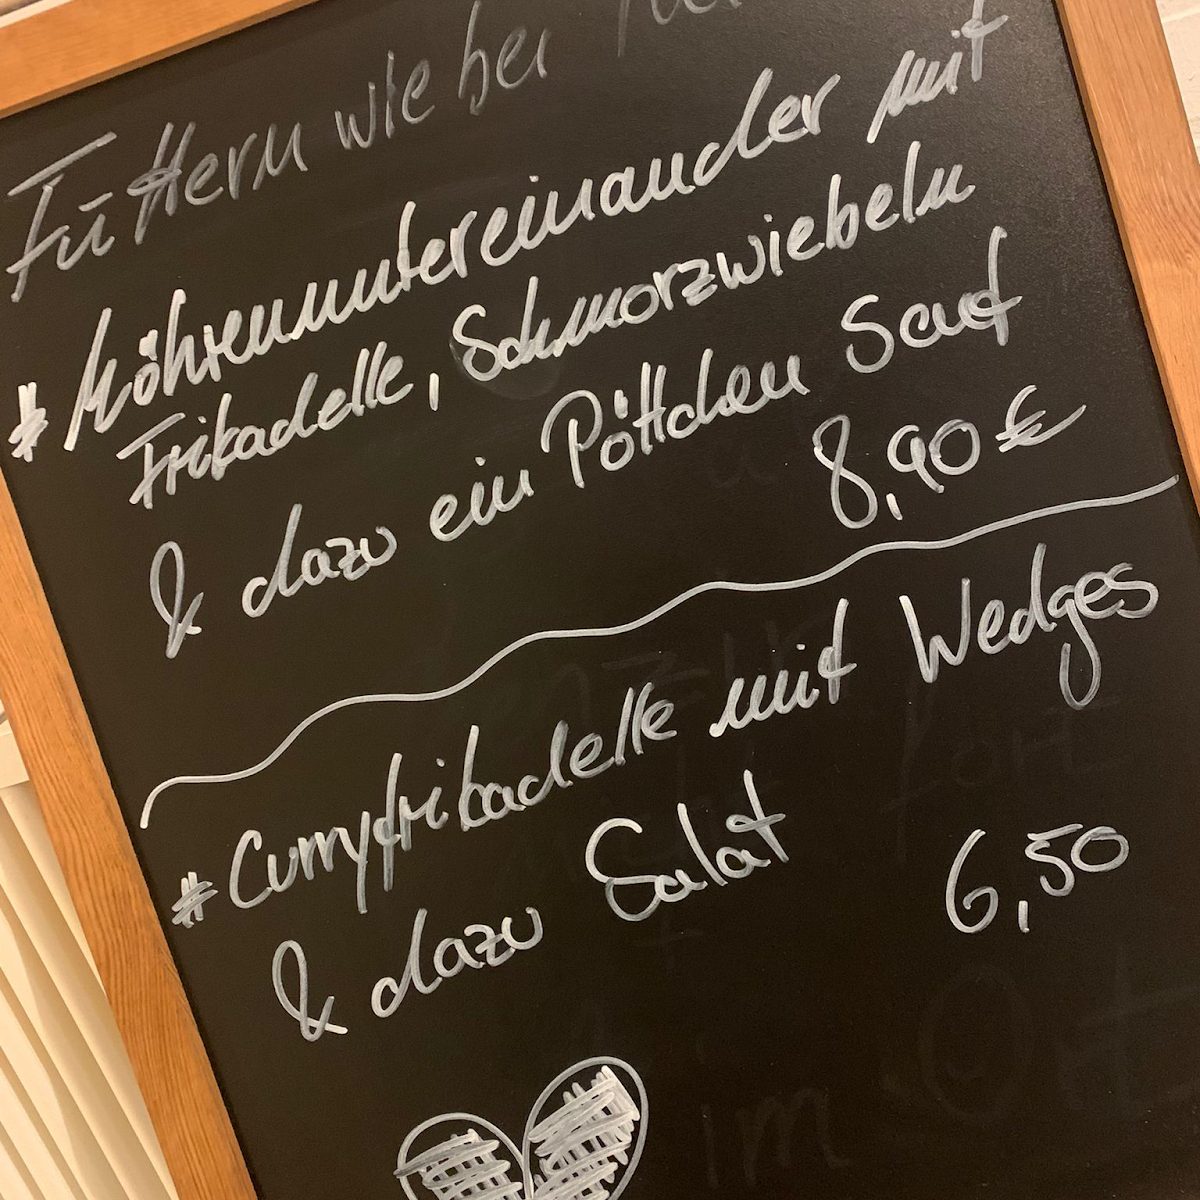 Füttern wie bei
* Möhrenuntereinander mit
Frikadelle, Schmorzwiebeln
& dazu ein Pöttchen Senf
8,90 €
* Curryfrikadelle mit Wedges
& dazu Salat
6,50